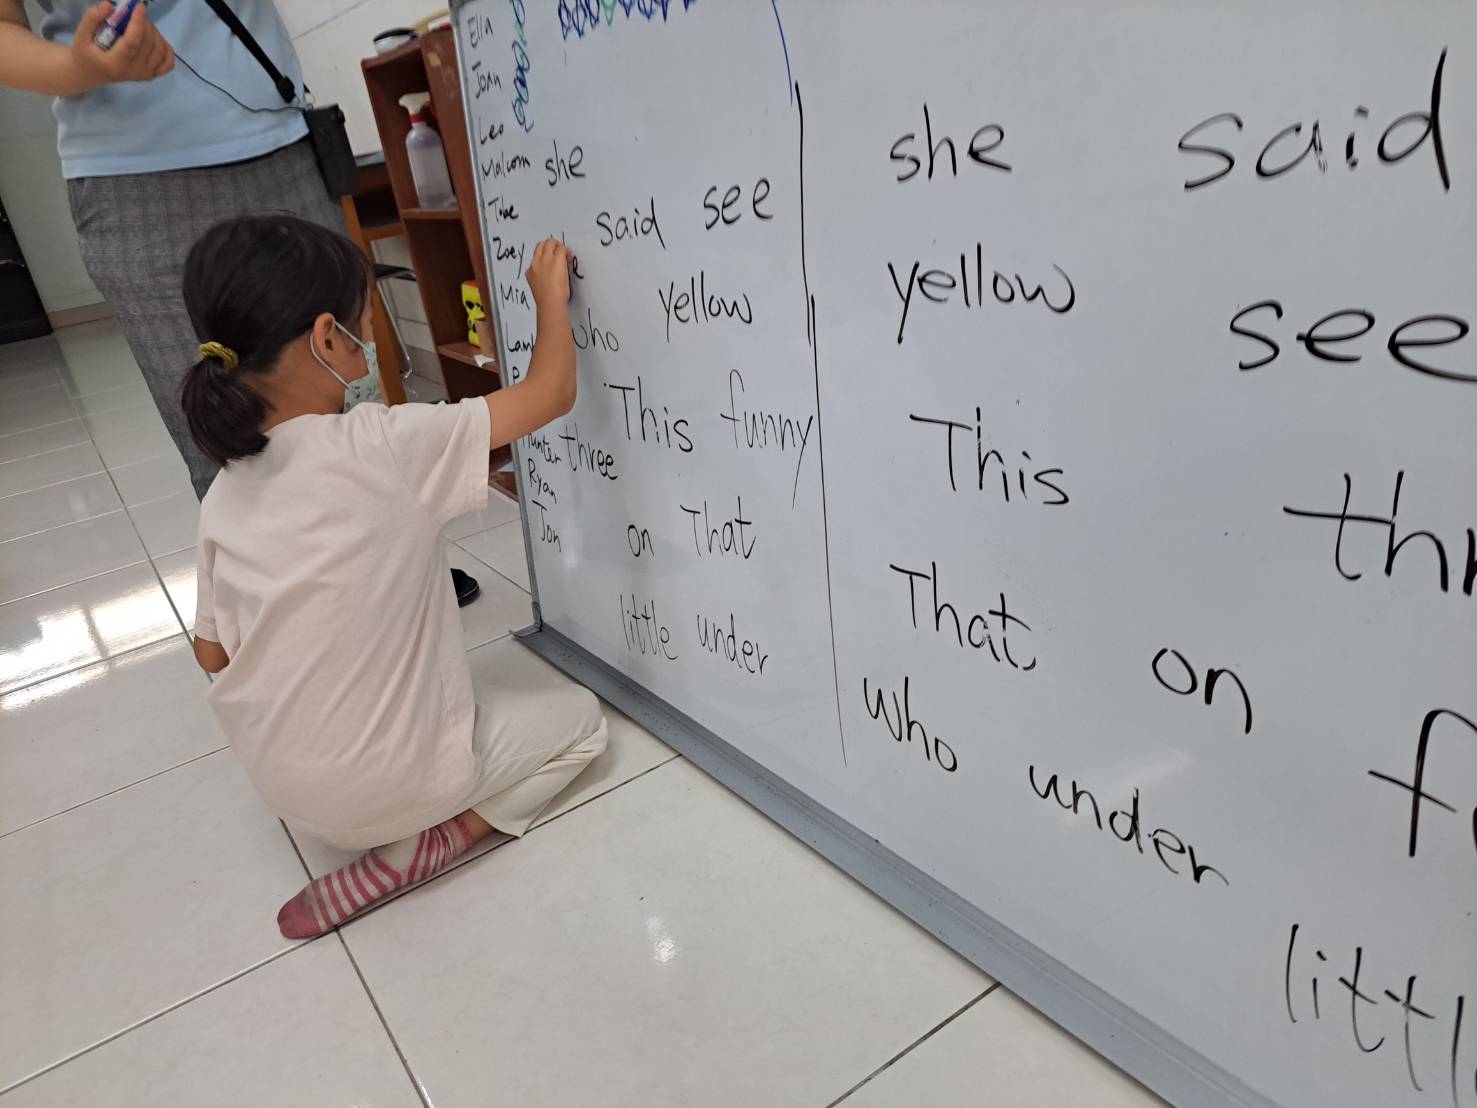 Ella
Joan
Leo
Malcom
Zoey
Mia
Hunter
Ryan
Jon
she
said see
yellow
who
This funny
three
on That
little under
she said
yellow see
This
That on
who under